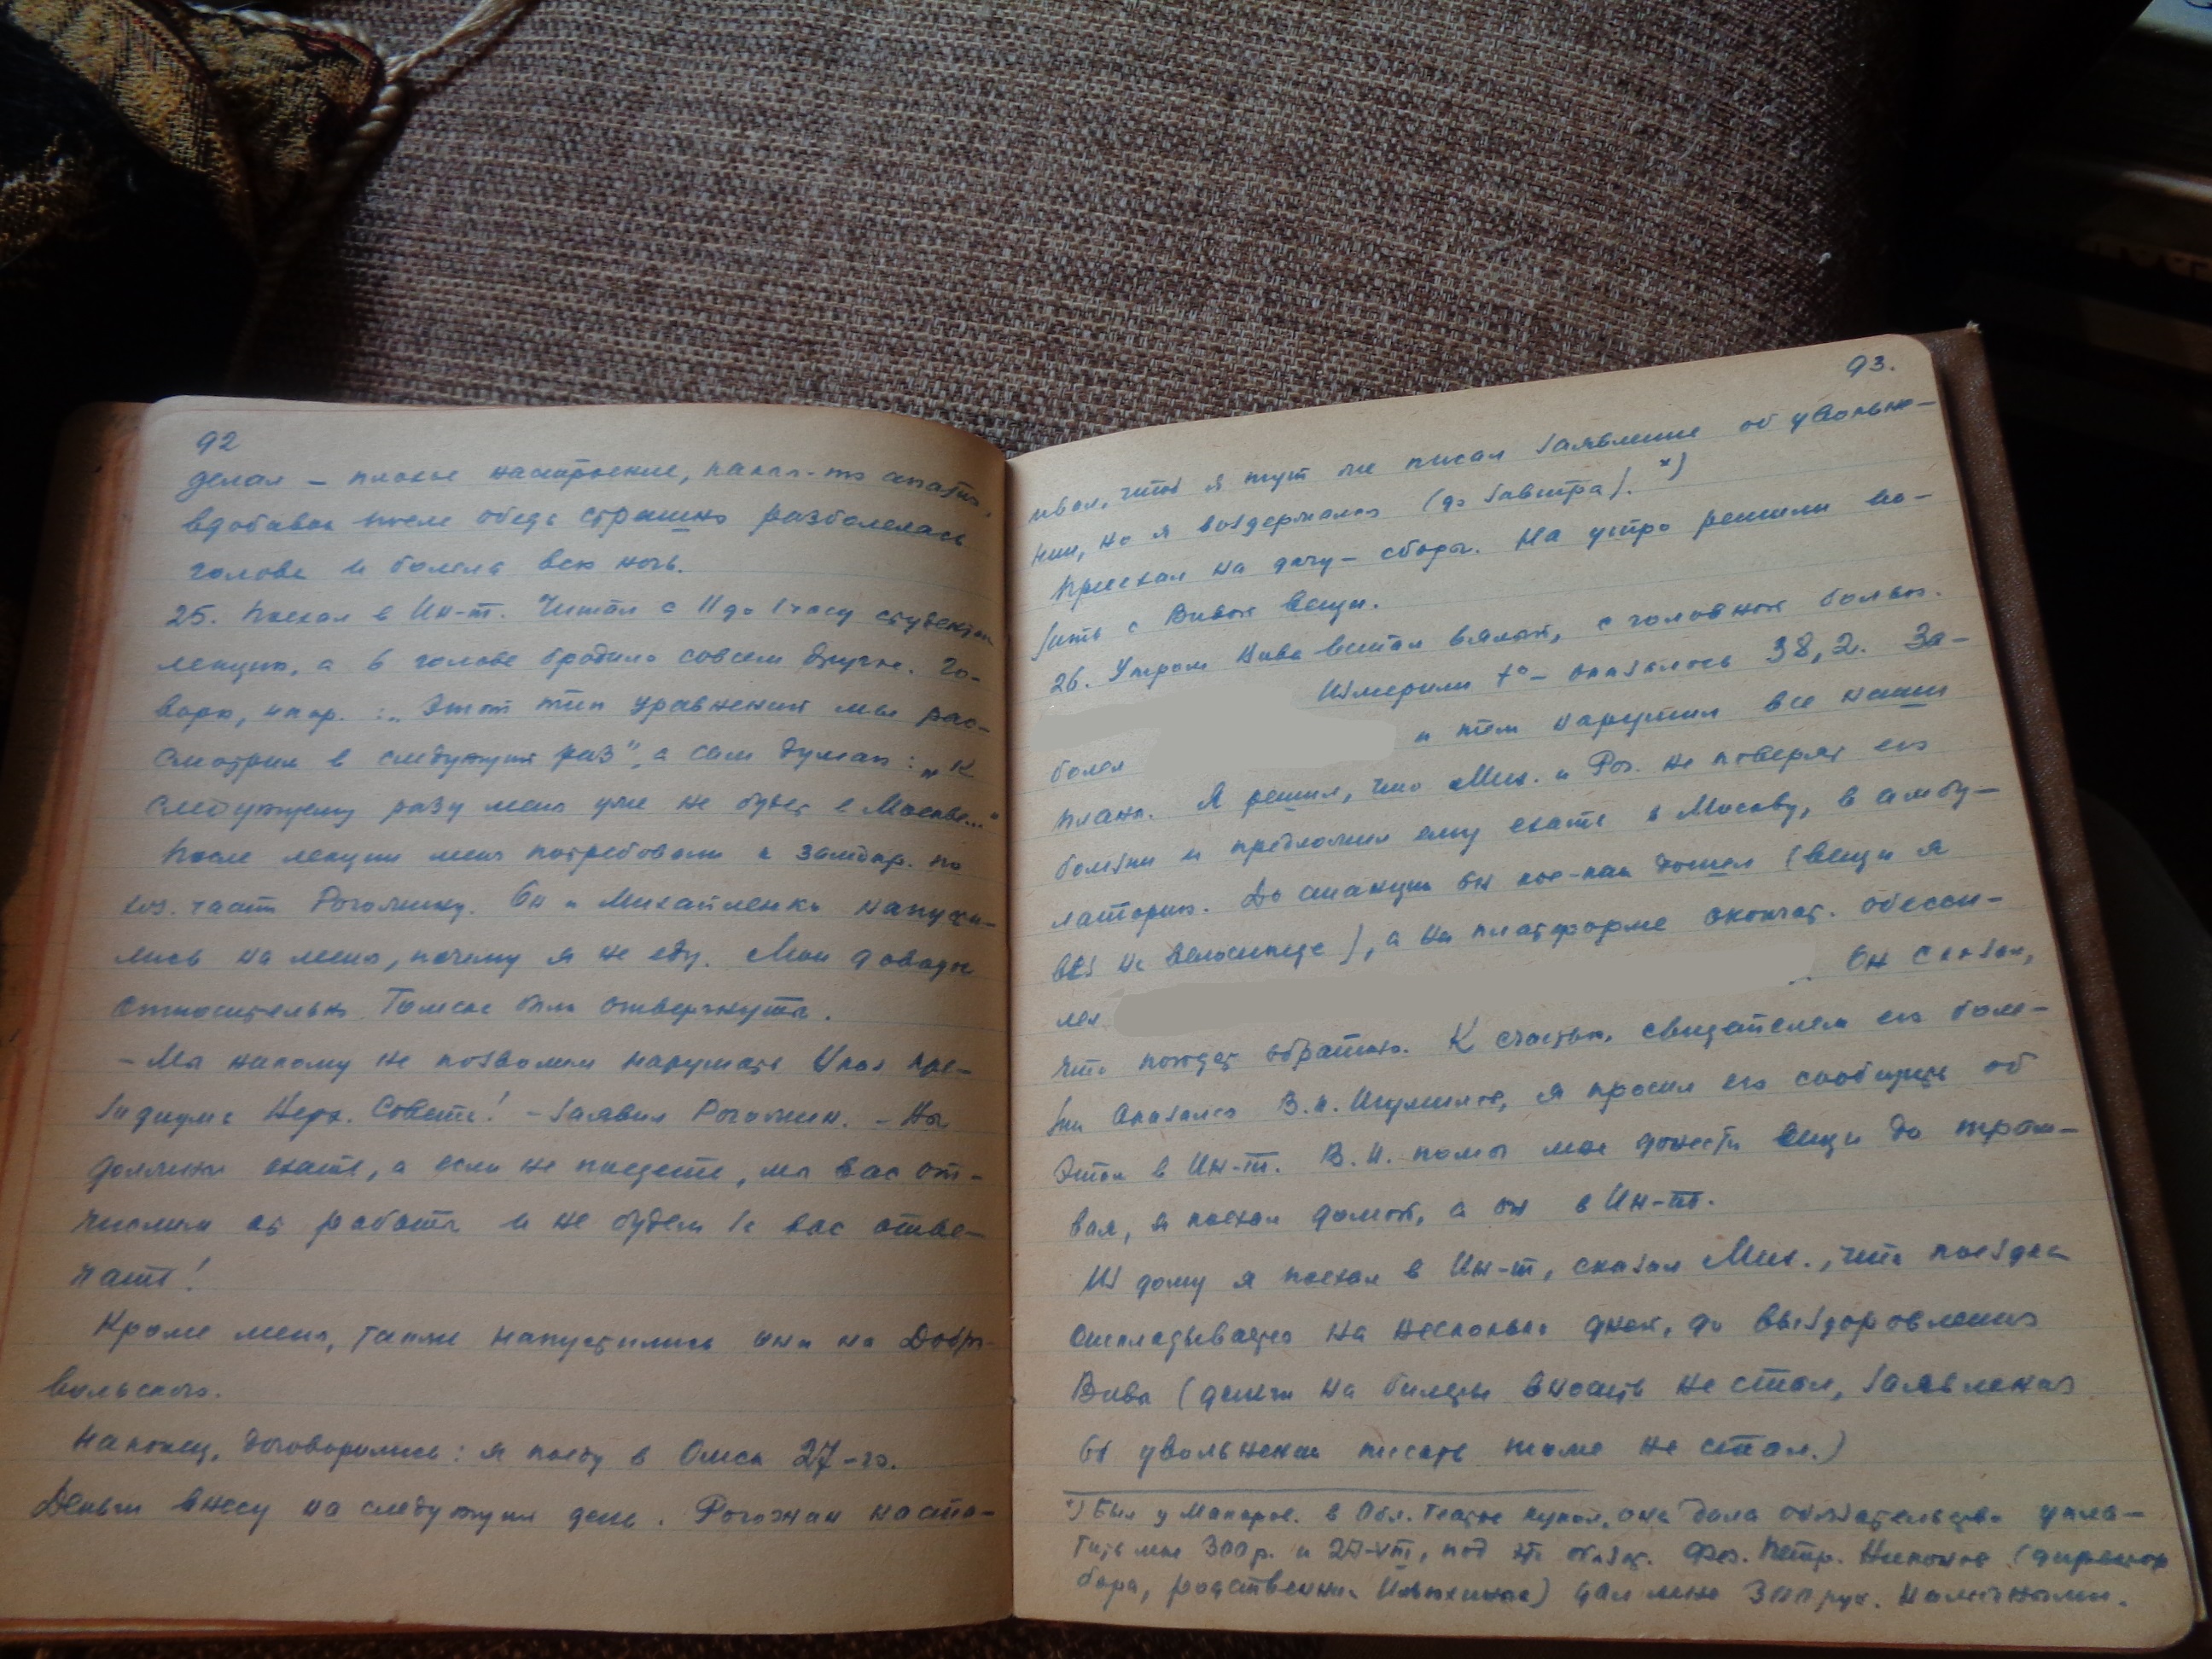 92
делал – плохое настроение, какая-то апатия,
вдобавок после обеда страшно разболелась
голова и болела всю ночь.
25. Поехал в Ин-т. Читал с 11 до 1 часу студентам
лекцию, а в голове бродило совсем другое. Го-
ворю, напр.: „Этот тип уравнений мы рас-
смотрим в следующий раз", а сам думаю: „К
следующему разу меня уже не будет в Москве..."
После лекции меня потребовали к замдир. по
хоз. части Рогожину. Он и Михайленко накину-
лись на меня, почему я не еду. Мои доводы
относительно Томска были отвергнуты.
– Мы никому не позволим нарушать Указ Пре-
зидиума Верх. Совета! – заявил Рогожин. – Вы
должны ехать, а если не поедете, мы вас от-
числим от работы и не будем за вас отве-
чать!
Кроме меня, также напустились они на Добро-
вольского.
Наконец, договорились: я поеду в Омск 27-го.
Деньги внесу на следующий день. Рогожин наста-
93.
ивал, чтоб я тут же писал заявление об увольне-
нии, но я воздержался (до завтра). *)
Приехал на дачу – сборы. На утро решили во-
зить с Вивой вещи.
26. Утром Вива встал вялый, с головной болью.
Измерили t° – оказалось 38,2. За-
болел и тем нарушил все наши
планы. Я решил, что Мих. и Рог. не поверят его
болезни и предложил ему ехать в Москву, в амбу-
латорию. До станции он кое-как дошел (вещи я
вёз на велосипеде), а на платформе окончат. обесси-
лел. Он сказал,
что поедет обратно. К счастью, свидетелем его боле-
зни оказался В.И. Шумилов, я просил его сообщить об
этом в Ин-т. В.И. помог мне донести вещи до трам-
вая, я поехал домой, а он в Ин-т.
Из дому я поехал в Ин-т, сказал Мих., что поездка
откладывается на несколько дней, до выздоровления
Вивы (деньги на билеты вносить не стал, заявления
об увольнении писать тоже не стал.)
*) Был у Макаров. в Обл. Театре кукол, она дала обязательство упла-
тить мне 300 р. к 27-VIII, под это обязат. Фед. Петр. Никонов (директор
бора, родственник) дал мне 300 руб. наличными.